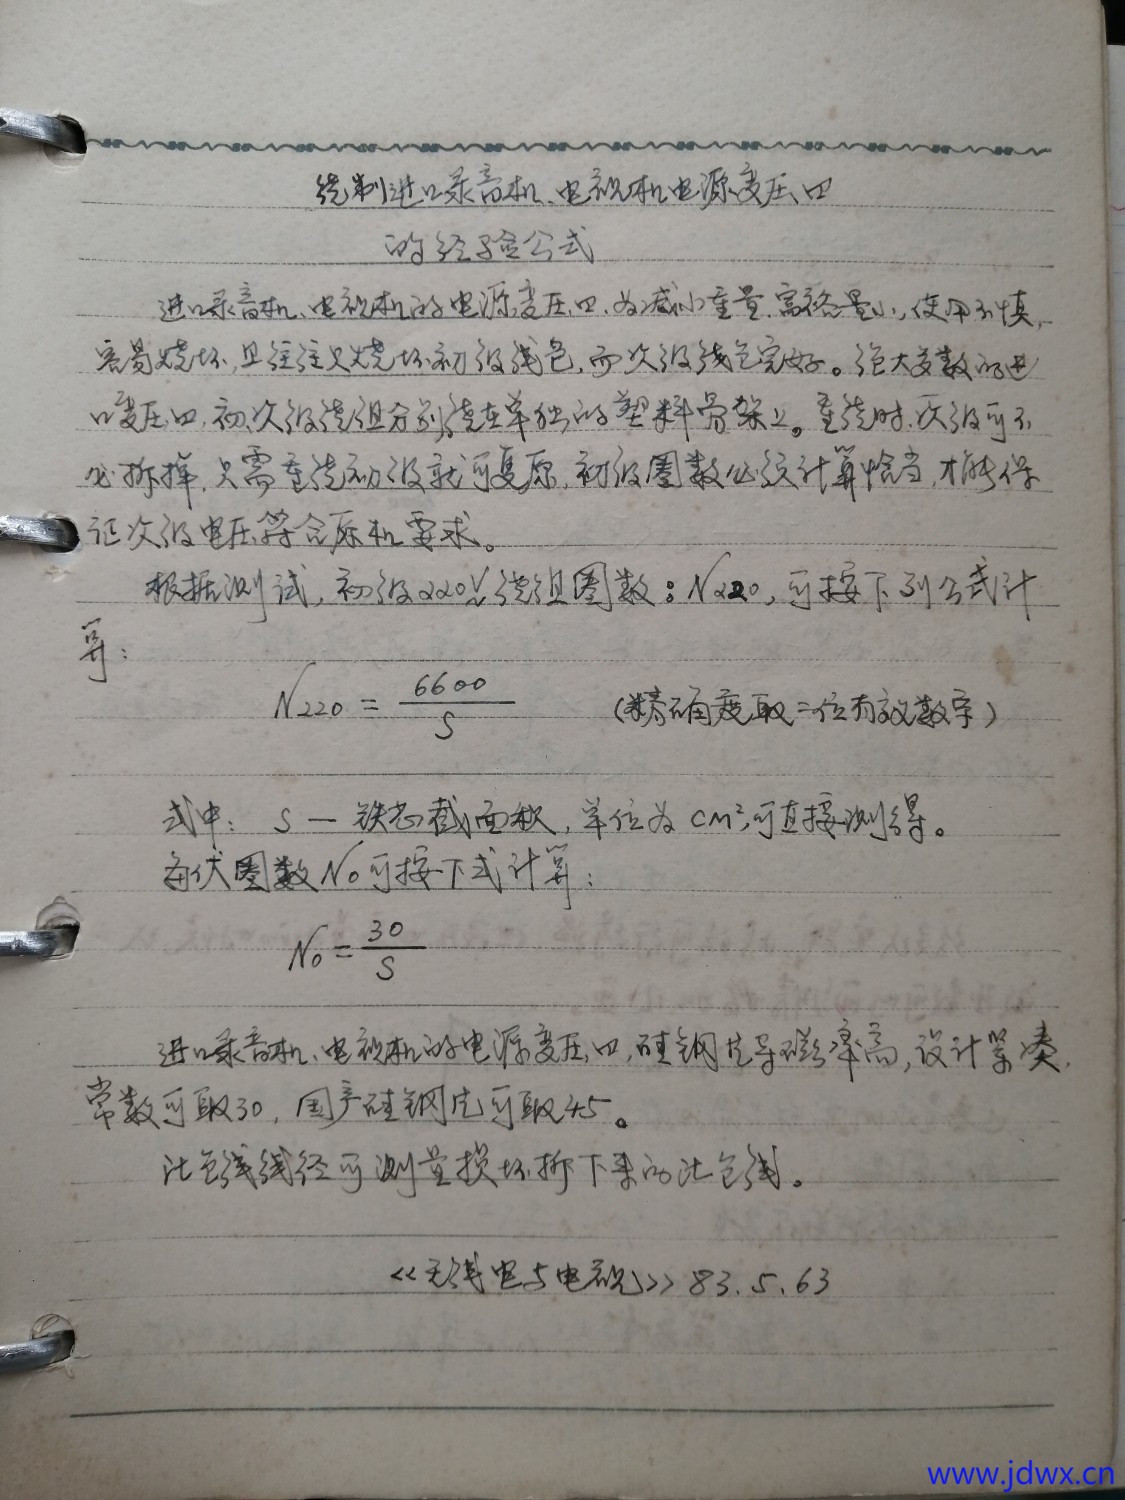 绕制进口录音机、电视机电源变压口
的经验公式
进口录音机、电视机的电源变压口,为减小重量,富裕量小,使用不慎,
容易烧坏,且往往只烧坏初级线包,而次级线包完好。绝大多数的进
口变压口,初、次级绕组分别绕在单独的塑料骨架上。重绕时,次级可不
必拆掉,只需重绕初级就可复原,初级圈数必须计算恰当,才能保
证次级电压符合原机要求。
根据测试,初级220V绕组圈数:N220,可按下列公式计
算:
N220 = 6600/S (精确度取二位有效数字)
式中: S — 铁芯截面积,单位为cm²,可直接测得。
每伏圈数N0可按下式计算:
N0 = 30/S
进口录音机、电视机的电源变压口,硅钢片导磁率高,设计紧凑,
常数可取30,国产硅钢片可取45。
漆包线线径可测量损坏拆下来的漆包线。
《无线电与电视》83.5.63
www.jdwx.cn